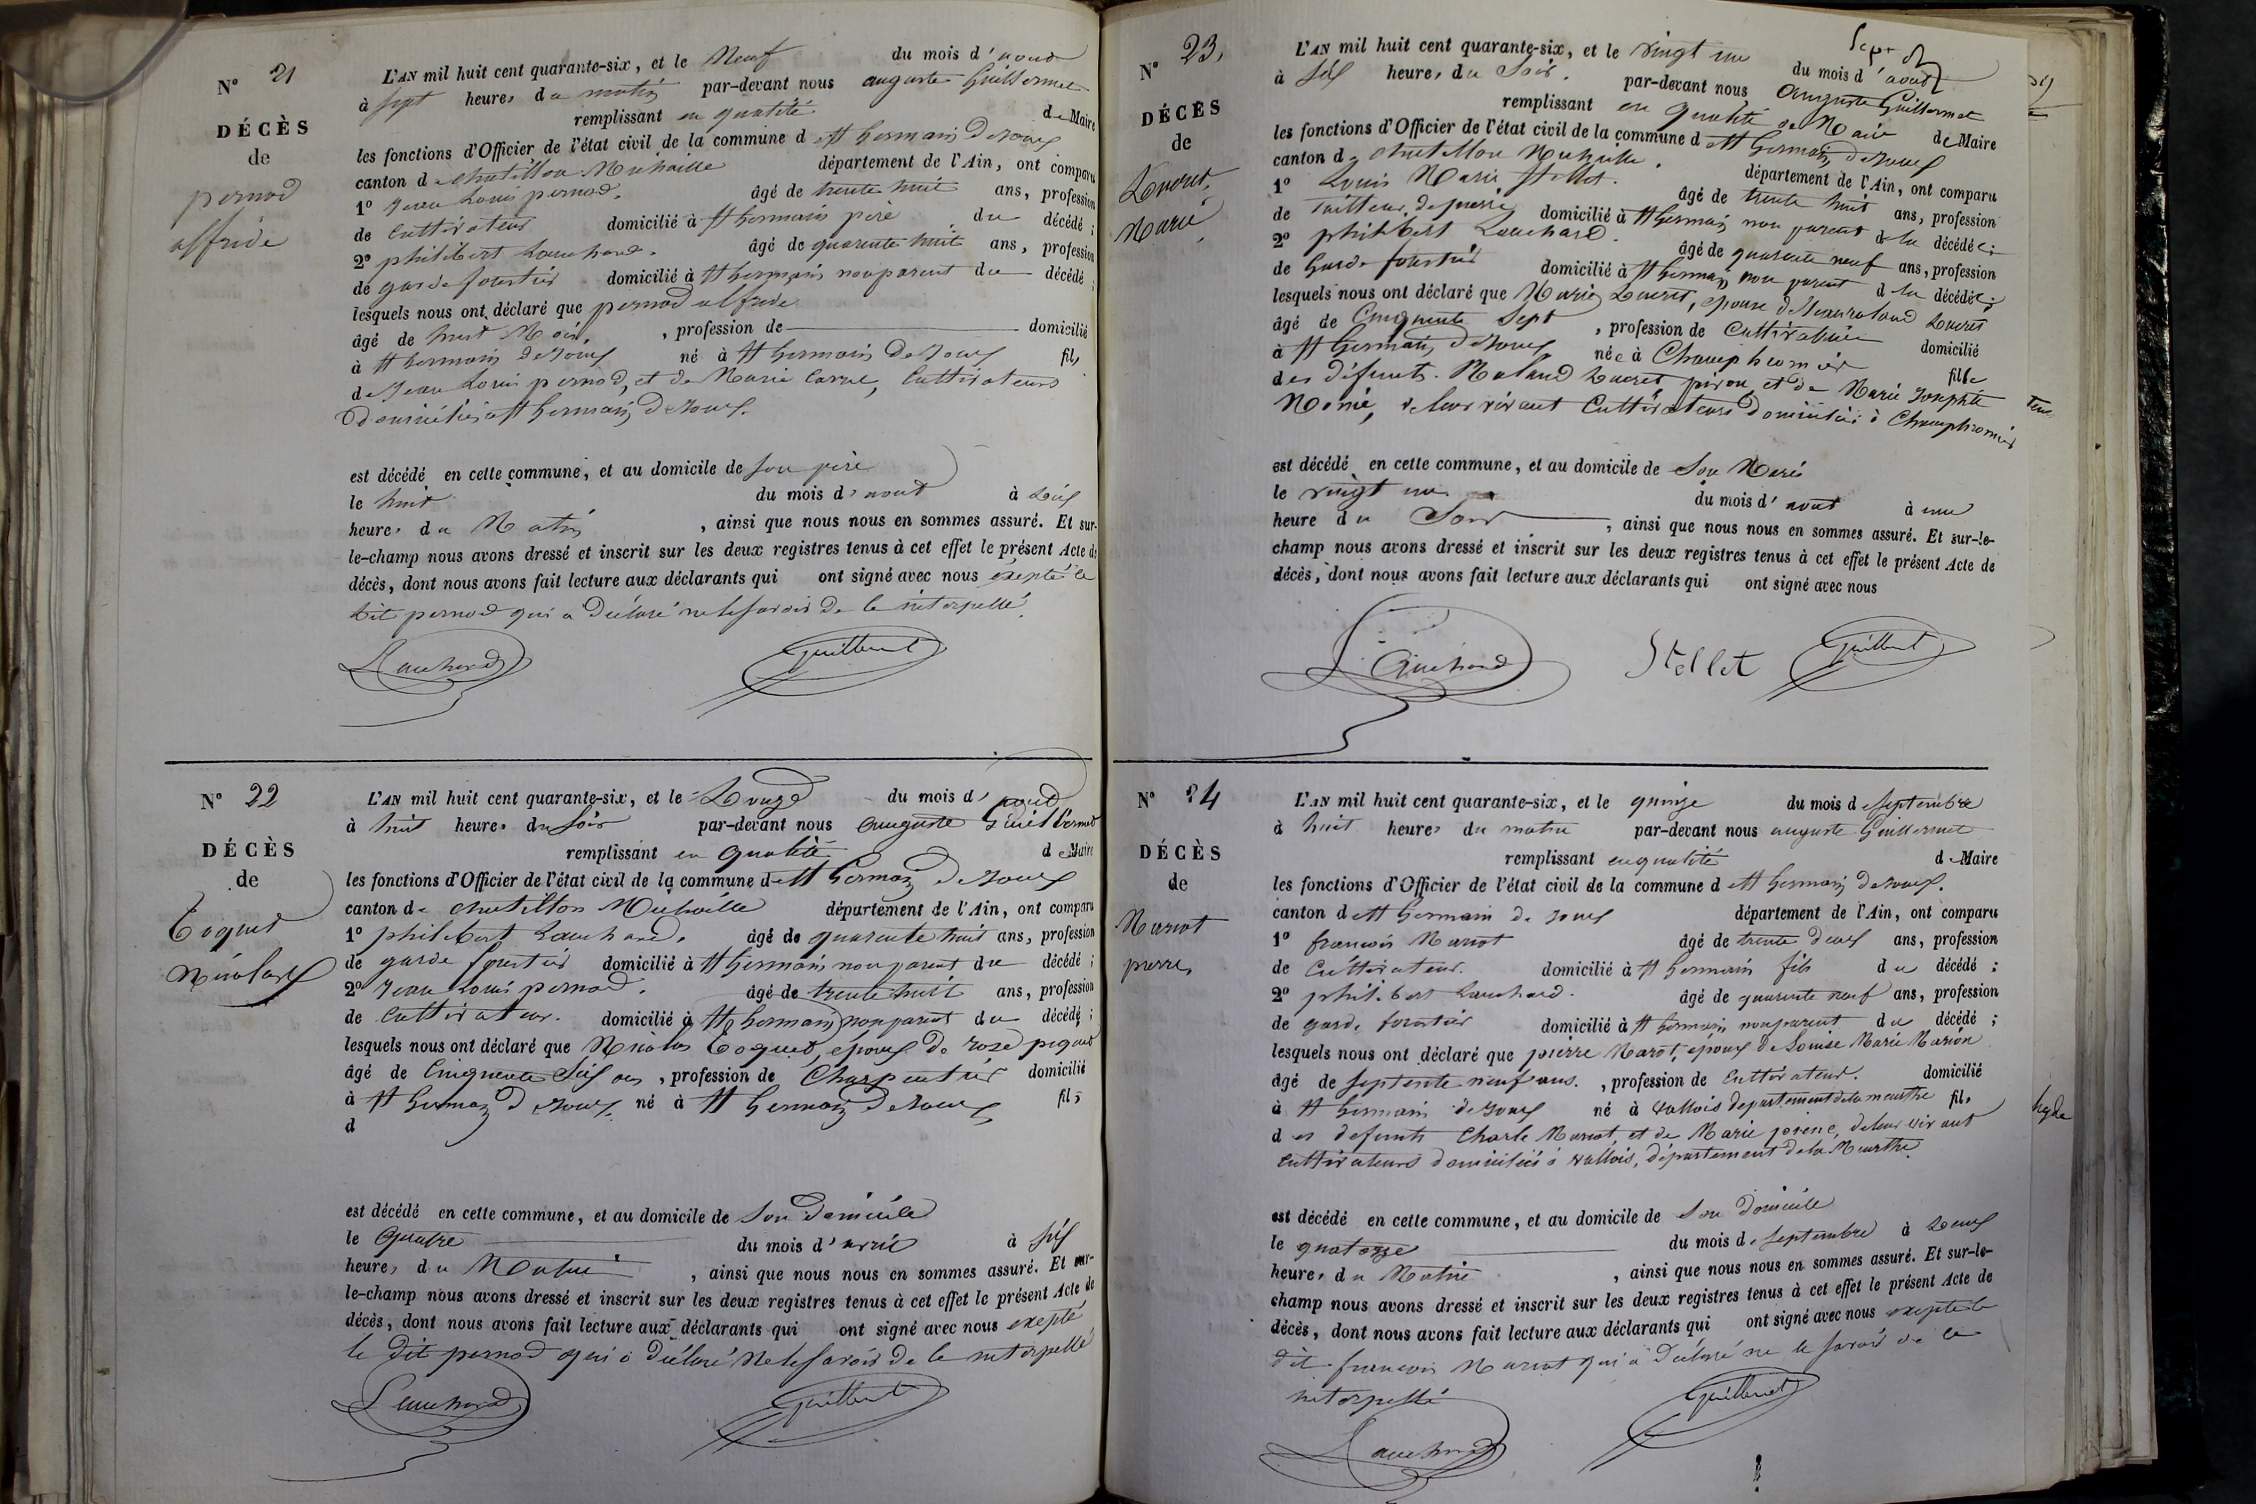 N° 21
DÉCÈS
de
pernod
alfride
L'AN mil huit cent quarante-six, et le Neuf du mois d'aout
à sept heures du matin par-devant nous auguste Guillermet
remplissant en qualité de Maire
les fonctions d'Officier de l'état civil de la commune de St Germain de Joux
canton de chatillon Michaille département de l'Ain, ont comparu
1° Jean Louis pernod. âgé de trente huit ans, profession
de Cultivateur domicilié à St Germain père du décédé ;
2° philibert Lauchard. âgé de quarente huit ans, profession
de garde forestier domicilié à St Germain non parent du décédé ;
lesquels nous ont déclaré que pernod alfride
âgé de huit Mois, , profession de domicilié
à St Germain de Joux né à St Germain de Joux fils
de Jean Louis pernod, et de Marie Carre, Cultivateurs
Domiciliés à St Germain de Joux.
est décédé en cette commune, et au domicile de son père
le huit du mois d'aout à dix
heures du Matin , ainsi que nous nous en sommes assuré. Et sur-
le-champ nous avons dressé et inscrit sur les deux registres tenus à cet effet le présent Acte de
décès, dont nous avons fait lecture aux déclarants qui ont signé avec nous exepté le
dit pernod qui a déclaré ne le savoir de ce interpellé.
Lauchard Guillermet
N° 22
DÉCÈS
de
Coquet
Nicolas
L'AN mil huit cent quarante-six, et le Douze du mois d'aout
à huit heures du soir par-devant nous auguste Guillermet
remplissant en qualité de Maire
les fonctions d'Officier de l'état civil de la commune de St Germain de Joux
canton de chatillon Michaille département de l'Ain, ont comparu
1° philibert Lauchard. âgé de quarente huit ans, profession
de garde forestier domicilié à St Germain non parent du décédé ;
2° Jean Louis pernod. âgé de trente huit ans, profession
de Cultivateur. domicilié à St Germain non parent du décédé ;
lesquels nous ont déclaré que Nicolas Coquet, époux de roze
âgé de Cinquente Six ans , profession de Charpentier domicilié
à St Germain de Joux, né à St Germain de Joux fils
d
est décédé en cette commune, et au domicile de Son domicile
le Quatre du mois d' à six
heures du Matin , ainsi que nous nous en sommes assuré. Et sur-
le-champ nous avons dressé et inscrit sur les deux registres tenus à cet effet le présent Acte de
décès, dont nous avons fait lecture aux déclarants qui ont signé avec nous exepté
le dit pernod qui a déclaré ne le savoir de ce interpellé
Lauchard Guillermet
N° 23.
DÉCÈS
de
Ducret,
Marie
L'AN mil huit cent quarante-six, et le vingt un du mois d'aout
à six heures du Soir. par-devant nous Auguste Guillermet
remplissant en qualité de Maire de Maire
les fonctions d'Officier de l'état civil de la commune de St Germain de Joux
canton de chatillon Michaille. département de l'Ain, ont comparu
1° Louis Marie Stellet. âgé de trente huit ans, profession
de Tailleur de pierre domicilié à St Germain non parent de la décédée ;
2° philibert Lauchard. âgé de quarente neuf ans, profession
de Garde forestier domicilié à St Germain non parent de la décédée ;
lesquels nous ont déclaré que Marie Ducret, épouse de Ducret
âgé de Cinquente Sept , profession de Cultivatrice domicilié
à St Germain de Joux née à Champfromier fille
des défunts Roland Ducret et de Marie Josephte
de leur vivant Cultivateurs domiciliés à Champfromier
est décédé en cette commune, et au domicile de Son Mari
le vingt un du mois d'aout à une
heure du Soir , ainsi que nous nous en sommes assuré. Et sur-le-
champ nous avons dressé et inscrit sur les deux registres tenus à cet effet le présent Acte de
décès, dont nous avons fait lecture aux déclarants qui ont signé avec nous
Lauchard Stellet Guillermet
N° 24
DÉCÈS
de
Mariot
pierre
L'AN mil huit cent quarante-six, et le quinze du mois de Septembre
à huit heures du matin par-devant nous auguste Guillermet
remplissant en qualité de Maire
les fonctions d'Officier de l'état civil de la commune de St Germain de Joux.
canton de St Germain de Joux département de l'Ain, ont comparu
1° francois Mariot âgé de trente deux ans, profession
de Cultivateur. domicilié à St Germain fils du décédé ;
2° philibert Lauchard. âgé de quarente neuf ans, profession
de garde forestier domicilié à St Germain non parent du décédé ;
lesquels nous ont déclaré que pierre Mariot, époux de Louise Marie Marion
âgé de septente neuf ans. , profession de Cultivateur. domicilié
à St Germain de Joux né à Vallois departement de la meurthe fils
des defunts Charle Mariot, et de Marie de leur vivant
Cultivateurs domiciliés à Vallois, département de la Meurthe.
est décédé en cette commune, et au domicile de Son Domicile
le quatorze du mois de Septembre à Deux
heures du Matin , ainsi que nous nous en sommes assuré. Et sur-le-
champ nous avons dressé et inscrit sur les deux registres tenus à cet effet le présent Acte de
décès, dont nous avons fait lecture aux déclarants qui ont signé avec nous exepté le
dit francois Mariot qui a déclaré ne le savoir de ce
interpellé
Lauchard Guillermet